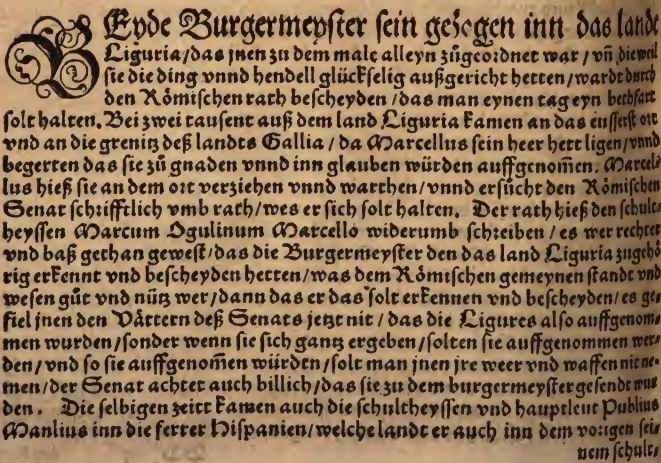 BEyde Burgermeyster sein gezogen inn das lande
Liguria/das jnen zu dem male alleyn zůgeordnet war/vn̄ dieweil
sie die ding vnnd hendell glückselig außgericht hetten/wardt durch
den Römischen rath bescheyden/das man eynen tag eyn bethfart
solt halten. Bei zwei tausent auß dem land Liguria kamen an das eusserst ort
vnd an die grenitz deß landts Gallia/da Marcellus sein heer hett ligen/vnnd
begerten das sie zů gnaden vnnd inn glauben würden auffgenom̄en. Marcel⸗
lus hieß sie an dem ort verziehen vnnd warthen/vnnd ersůcht den Römischen
Senat schrifftlich vmb rath/wes er sich solt halten. Der rath hieß den schult⸗
heyssen Marcum Ogulinum Marcello widerumb schreiben/es wer rechter
vnd baß gethan gewest/das die Burgermeyster den das land Liguria zugehö
rig erkennt vnd bescheyden hetten/was dem Römischen gemeynen standt vnd
wesen gůt vnd nütz wer/dann das er das solt erkennen vnd bescheyden/es ge⸗
fiel jnen den Vättern deß Senats jetzt nit/das die Ligures also auffgenom⸗
men wurden/sonder wenn sie sich gantz ergeben/solten sie auffgenommen wer⸗
den/vnd so sie auffgenom̄en würden/solt man jnen jre weer vnd waffen nit ne⸗
men/der Senat achtet auch billich/das sie zu dem burgermeyster gesendt wur
den. Die selbigen zeitt kamen auch die schultheyssen vnd hauptleut Publius
Manlius inn die ferrer Hispanien/welche landt er auch inn dem vorigen sei⸗
nem schult⸗